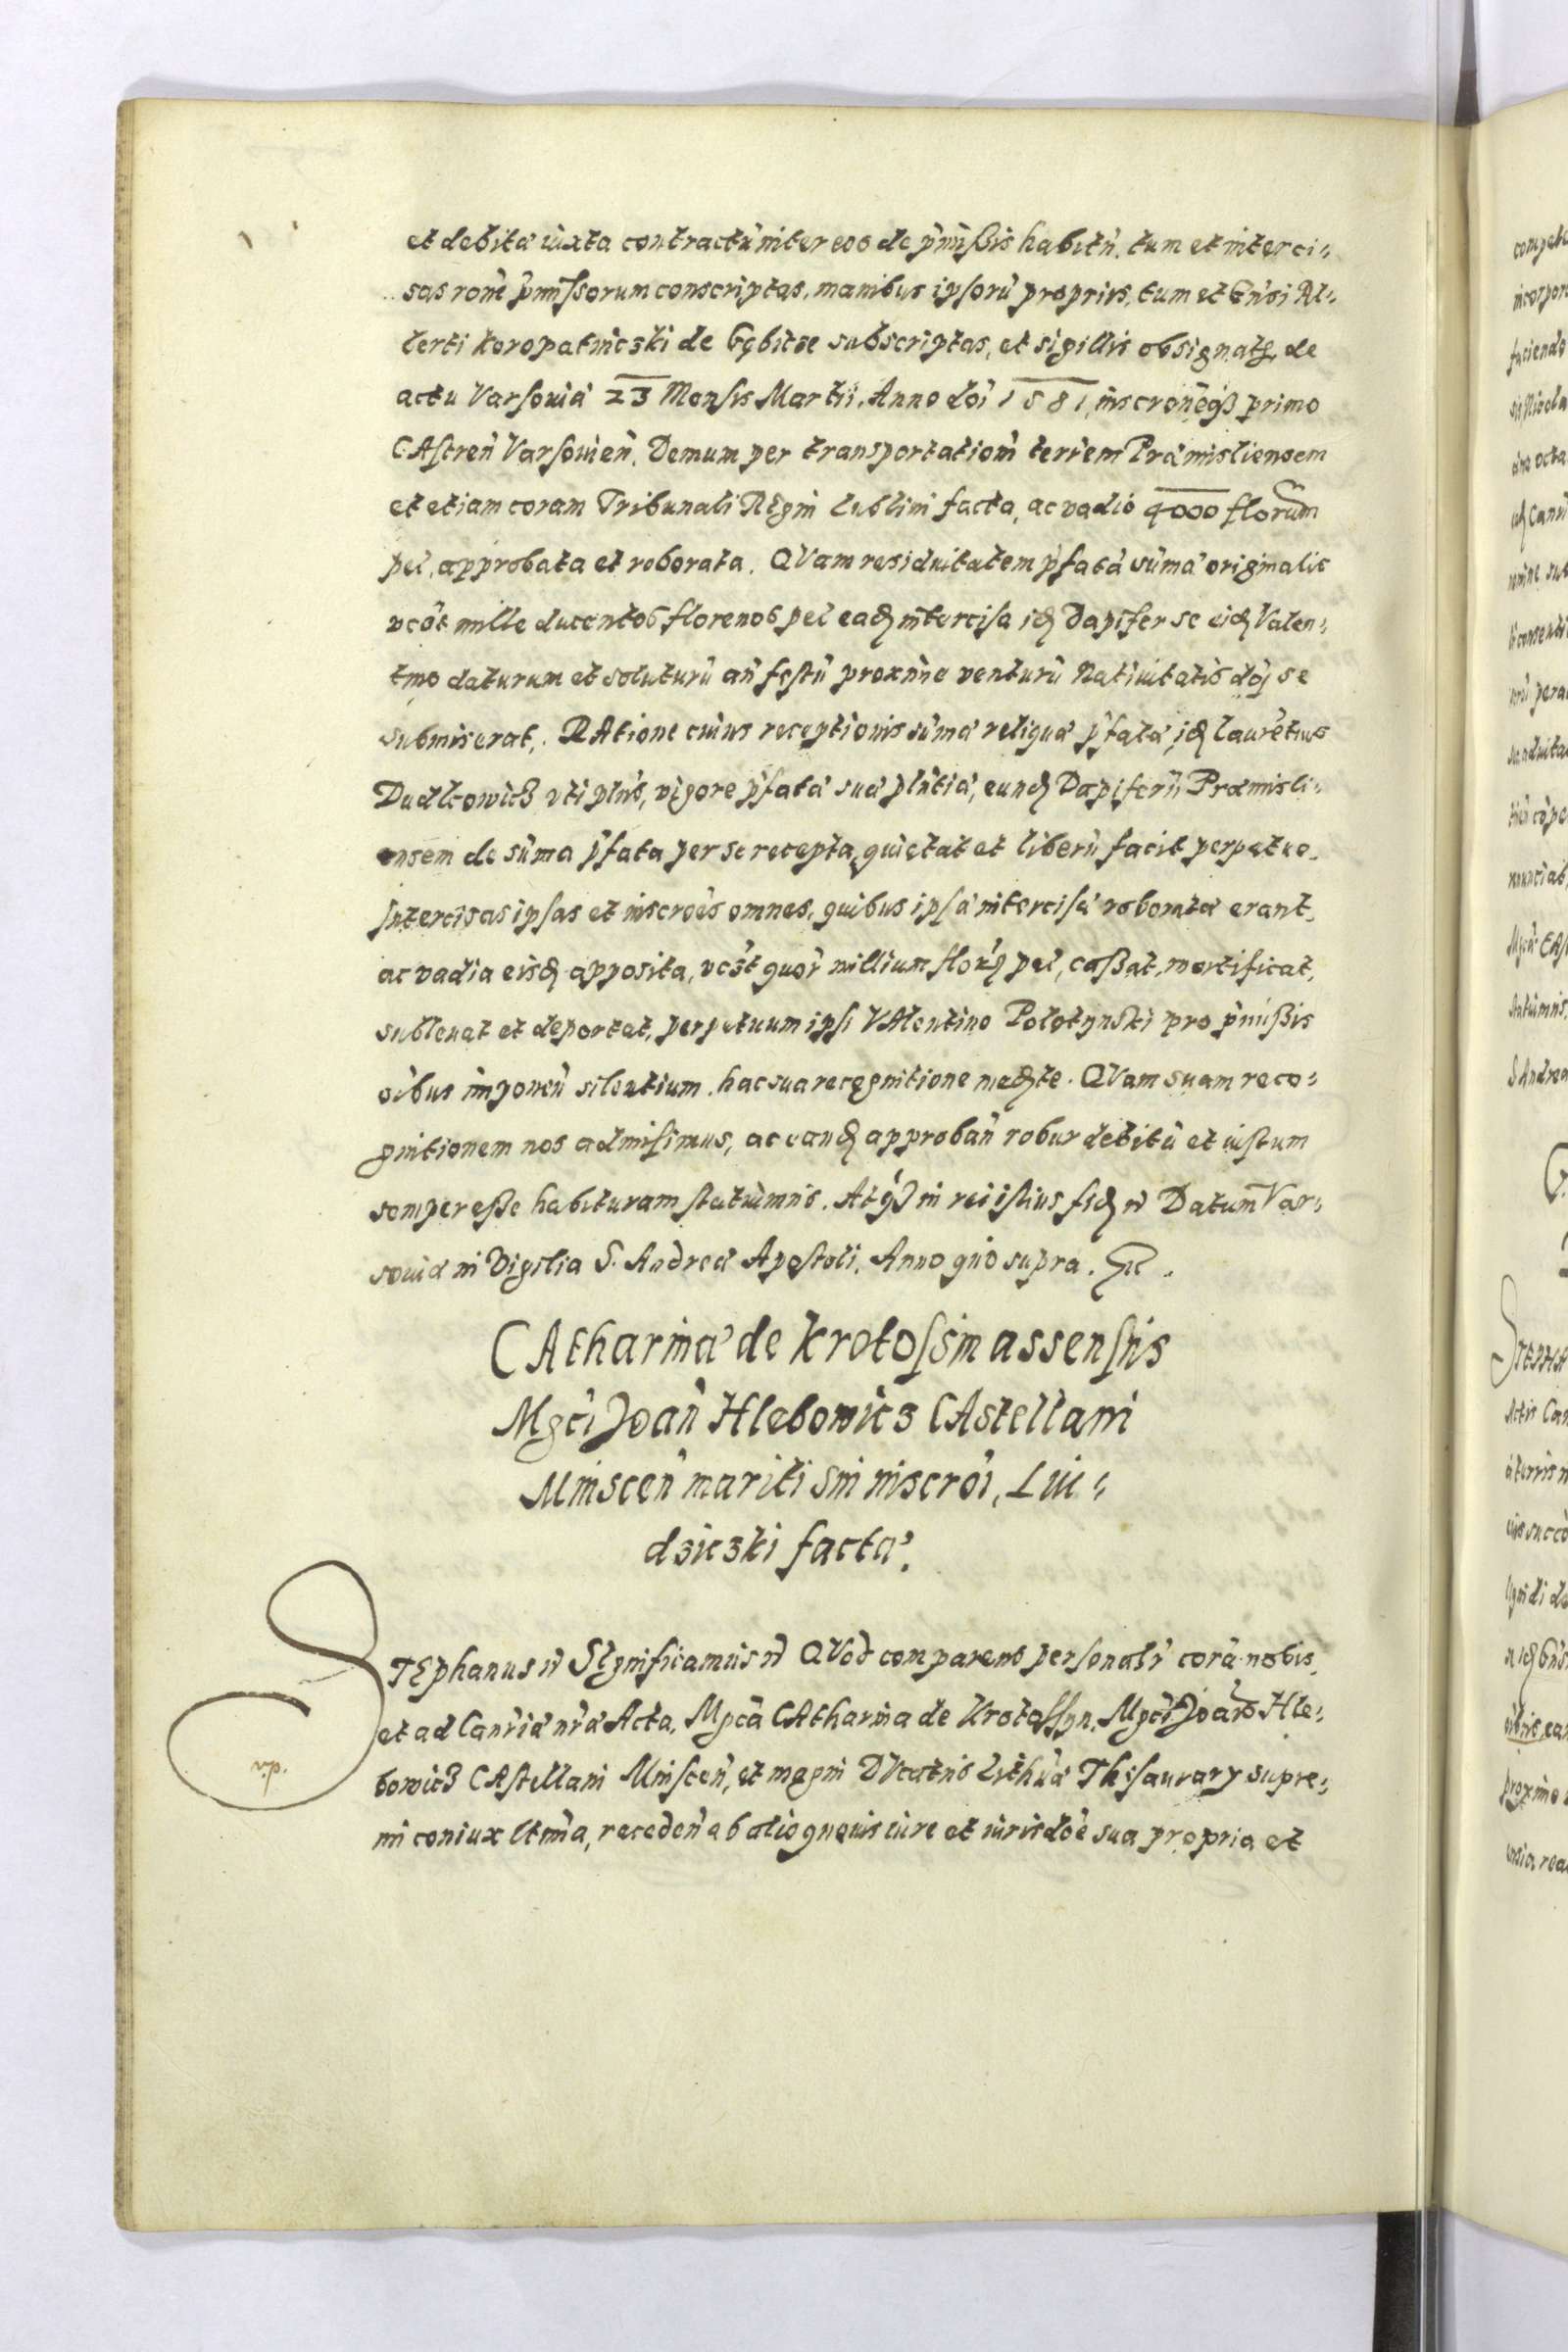 et debitæ iuxta contractũ inter eos de p̃mißis habitũ. tum et interci⸗
sas roñe p̃missorum conscriptas, manibus ipsorũ proprijs, tum et Gñsi Al⸗
berti Koropatniczki de Gębicze subscriptas, et sigillis obsignatas, de
actu Varsouiæ 23 Mensis Martii, Anno doi 1581, inscroñeqȝ primo
CAstreñ Varsouieñ. Demum per transportationẽ terrẽm Præmisliensem
et etiam coram Tribunali Regni Lublini facta, ac vadio 4000 florum
pel, approbata et roborata. QVam residuitatem p̃fatæ sũmæ originalis
vczt mille ducentos florenos pel eadȝ intercisa idȝ Dapifer se eidȝ Valen⸗
tino daturum et soluturũ añ festũ proxime venturũ Natiuitatis doj se
submiserat. RAtione cuius receptionis sũmæ reliquæ p̃fatæ, idȝ Laurẽtius
Dudkowicz vti plñs, vigore p̃fatæ suæ plñtiæ, eundȝ Dapiferũ Præmisli⸗
ensem de sũma p̃fata per se recepta, quietat et liberũ facit perpetuo.
Intercisas ipsas et inscroẽs omnes, quibus ipsæ intercisæ roboratæ erant,
ac vadia eisdȝ apposita, vczt quor̃ millium flor̃ pel, caßat, mortificat,
subleuat et deportat, perpetuum ipsi VAlentino Polotynski pro p̃mißis
oĩbus imponeñ silentium. hac sua recognitione medȝte. QVam suam reco⸗
gnitionem nos admisimus, ac eandȝ approbañ robur debitũ et iustum
semper eße habituram statuimus. Atqȝ in rei istius fidȝ ꝛc̃ Datum Var⸗
souiæ in Vigilia S. Andreæ Apostoli. Anno quo supra.
CAtharinæ de Krotossin assensus
Mgci Joañ Hlebowicz CAstellani
Minsceñ mariti sui inscroi, Lui⸗
dziczki factæ.
STEphanus ꝛc̃ SIgnificamus ꝛc̃ QVod comparens personalr̃ corã nobis,
et ad Canr̃iæ nr̃æ Acta, Mgca CAtharina de Krotossyn, Mgci Joañis Hle⸗
bowicz CAstellani Minsceñ, et magni DVcatus Lithuæ Thesaurary supre⸗
mi coniux Ltma, recedeñ ab alio quouis iure et iurisdoẽ sua propria et